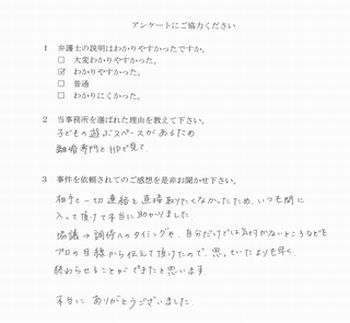 アンケートにご協力ください
1 弁護士の説明はわかりやすかったですか。
☐ 大変わかりやすかった。
☑ わかりやすかった。
☐ 普通
☐ わかりにくかった。
2 当事務所を選ばれた理由を教えて下さい。
子どもの遊ぶスペースがあるため
離婚専門とHPで見て
3 事件を依頼されてのご感想を是非お聞かせ下さい。
相手と一切連絡を直接取りたくなかったため、いつも間に
入って頂けて本当に助かりました
協議→調停へのタイミングや、自分だけでは気付かないところなどを
プロの目線から伝えて頂けたので、思っていたよりも早く、
終わらせることができたと思います
本当に ありがとうございました。